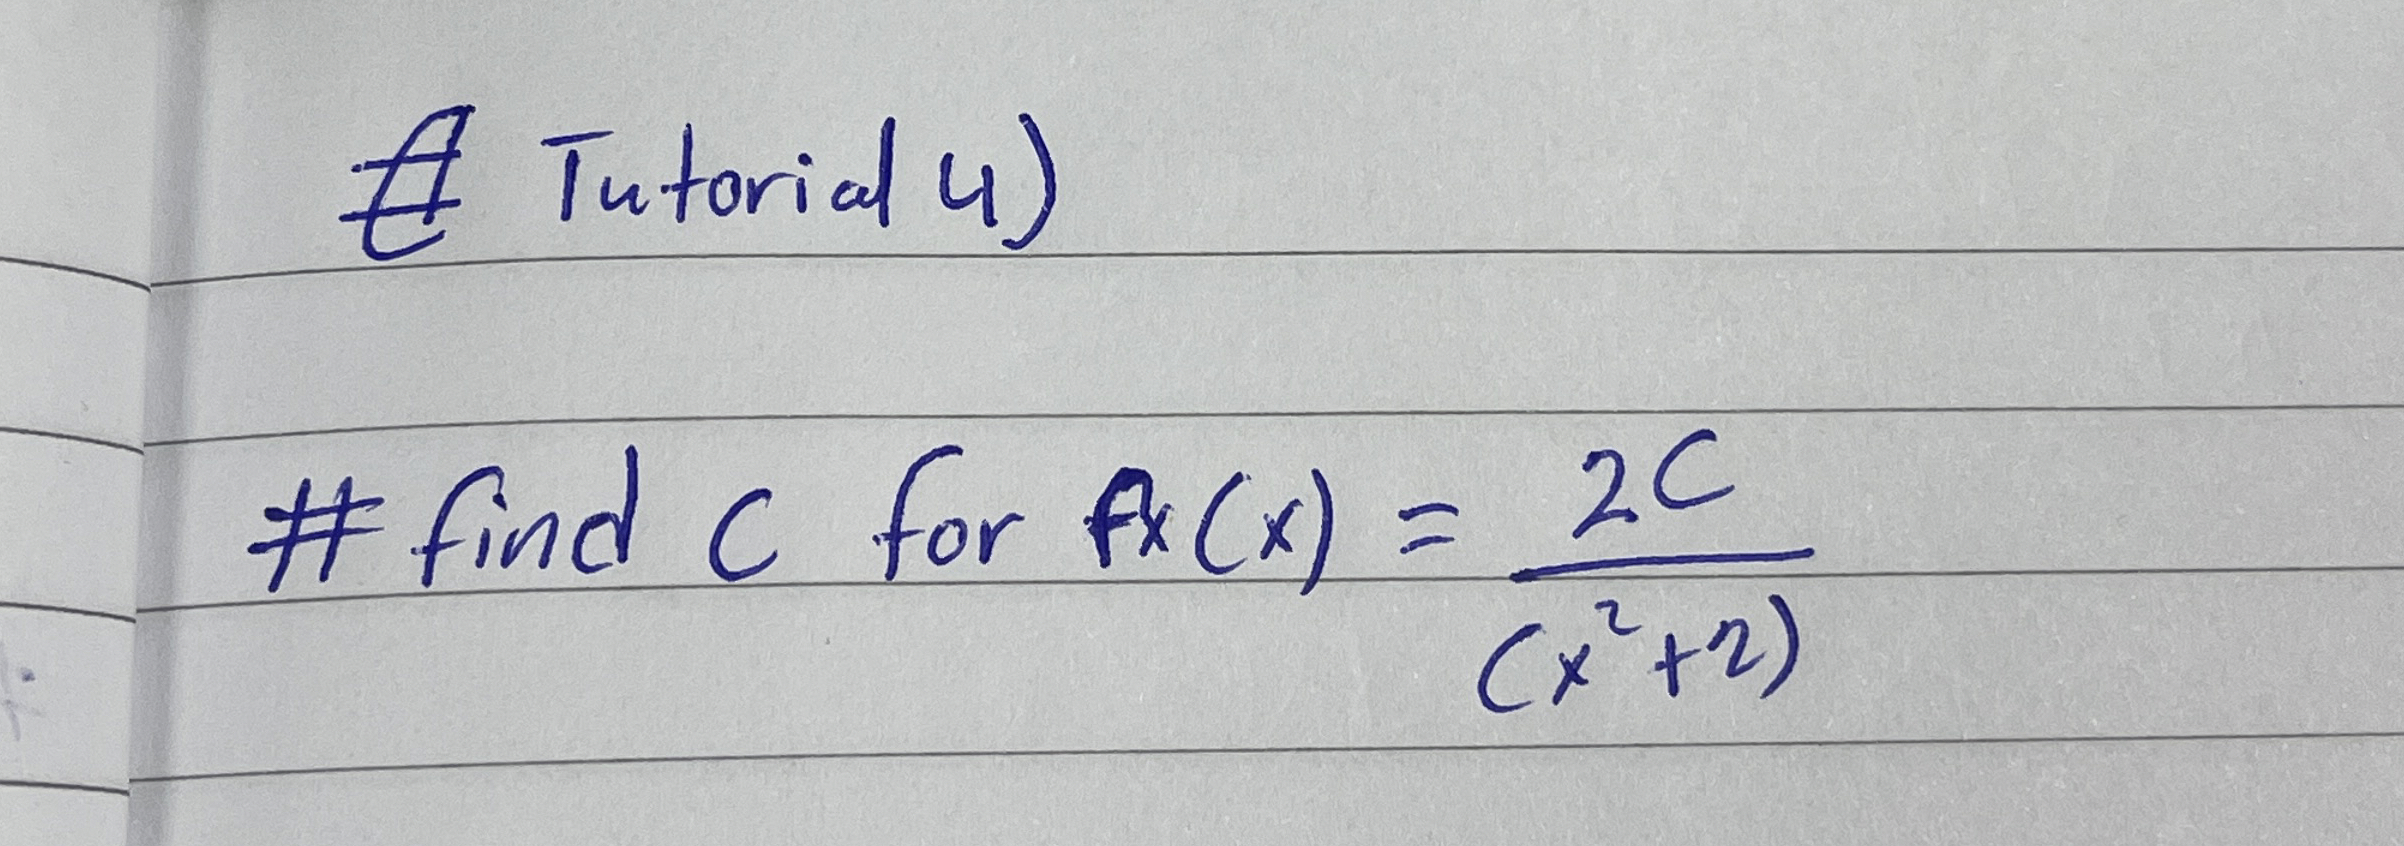 # Tutorial 4)
# find c for fx(x) = 2C / (x²+2)